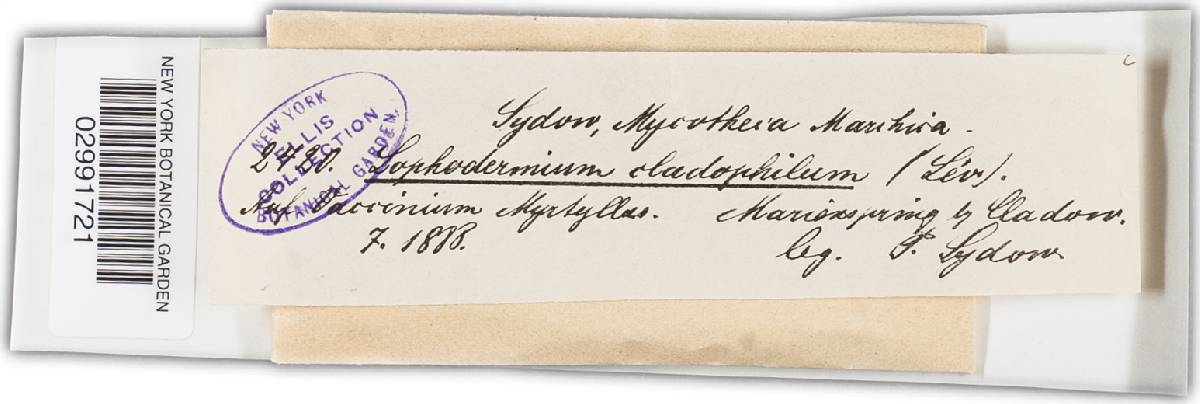 NEW YORK BOTANICAL GARDEN
02991721
NEW YORK
ELLIS
COLLECTION
BOTANICAL GARDEN.
Sydow, Mycotheca Marchica.
Lophodermium cladophilum (Lév).
Auf Vaccinium Myrtyllus. Marienspring b Cladow.
7. 1888. leg. P. Sydow